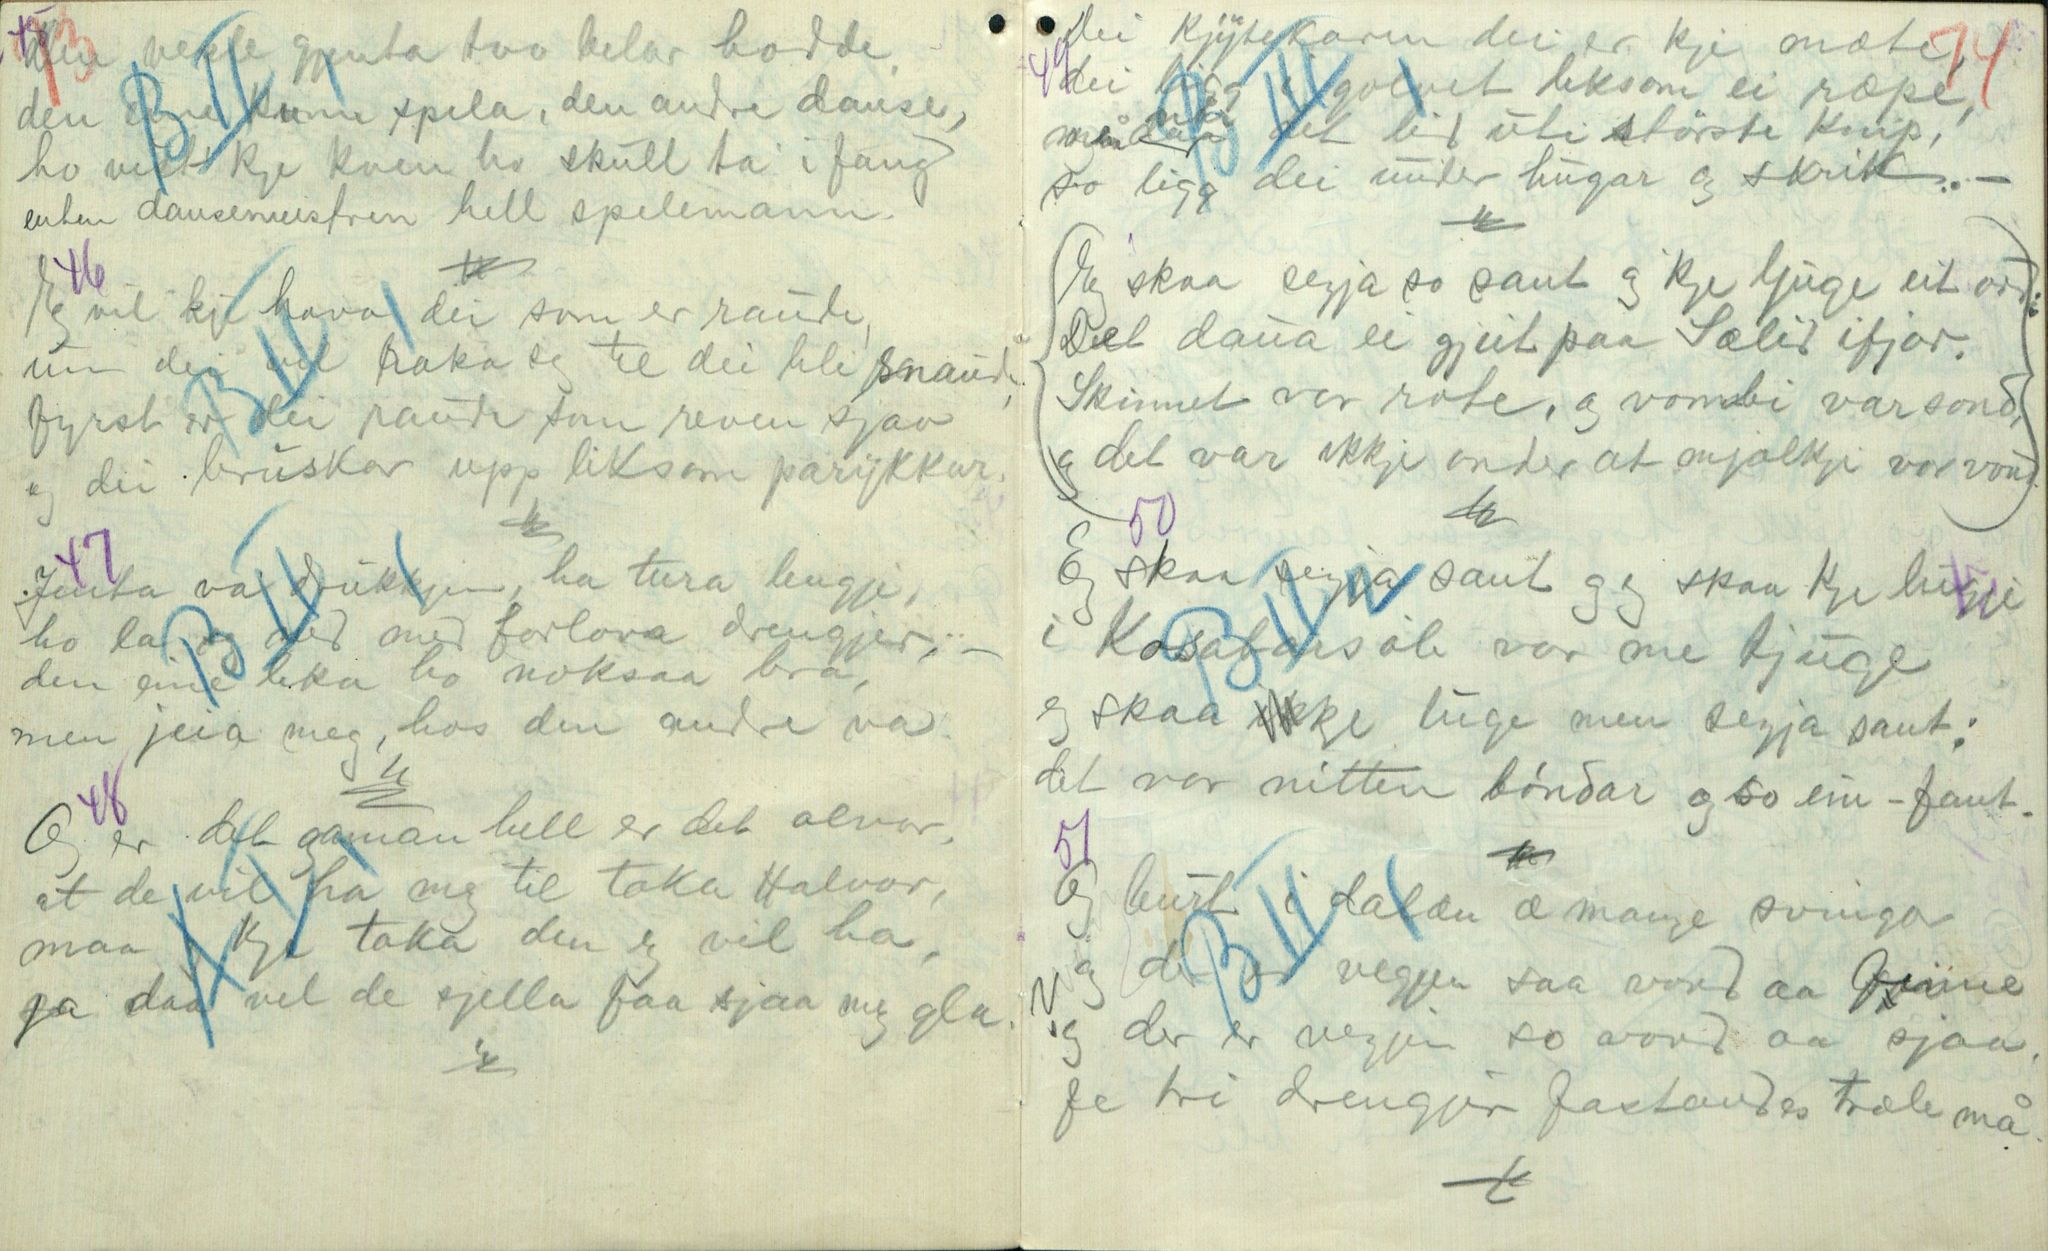 73
45
Den vesle gjenta two belar hadde,
den eine kunn spela, den andre danse,
ho visst kje kven ho skull ta i fang
enten dansemeistren hell spelemann.
B II 1
46
Eg vil kje hava dei som er raude,
um dei vil raka seg til dei bli snaude,
fyrst er dei raude som reven sjav
og dei bruskar upp liksom parykkar.
B II 1
47
Jenta va drukkjin, ha tura lengje,
ho la seg ned med forlova drengjer, –
den eine lika ho noksaa bra,
men jeia meg, hos den andre va.
B II 1
48
Og er det gaman hell er det alvor,
at de vil ha meg til taka Halvor,
maa kje taka den eg vil ha,
ja daa vil de sjella faa sjaa meg gla.
A II 1
74
49
dei kjytekaren dei er kje mæte,
dei ligg i golvet liksom ei ræpe,
men naar det lid uti störste knip,
so ligg dei under hugar og skrik. –
B III 1
Eg skaa segja so sant og kje ljuge eit ord:
Det daua ei gjeit paa Sælid ifjor.
Skinnet var rote, og vombi var sond,
og det var ikkje onder at mjølkji var vond.
50
Eg skaa segja sant og eg skaa kje
i var me tjuge
eg skaa kje luge men segja sant:
det var nitten böndar og so ein – fant.
B II
51
Og burt i dalæn æ mange svinga
og der er vegjen saa vond aa finne
og der er vegjin so vond aa sjaa,
fe tri drengjer fastandes træle må.
B II 1